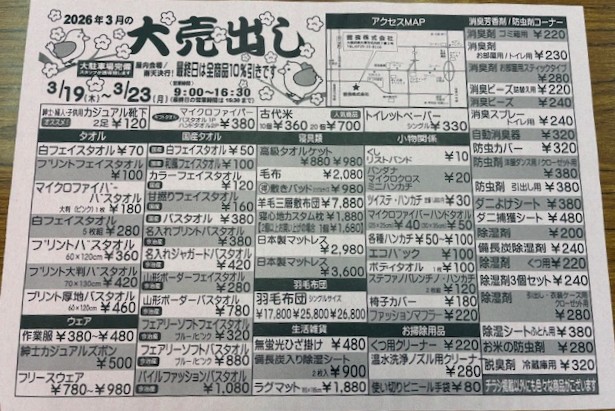 2026年3月の
大売出し
大駐車場完備
屋内会場/雨天決行!
最終日は全商品10%引きです
3/19(木)~3/23(月)
9:00~16:30
(最終日の営業時間は15:30まで)
紳士・婦人・子供用カジュアル靴下
オススメ! 2足 ¥120
マイクロファイバー
バスタオル ¥380
古代米 人気商品
10個 ¥360 20個 ¥700
タオル
白フェイスタオル ¥70
プリントフェイスタオル ¥100
マイクロファイバーバスタオル
大判(ピンク)1枚 ¥180
白フェイスタオル
5枚組 ¥280
プリントバスタオル
60×120cm ¥360
プリント大判バスタオル
70×130cm ¥420
プリント厚地バスタオル
60×120cm ¥460
ウェア
作業服 ¥380~¥480
紳士カジュアルズボン
¥500
フリースウェア
¥780~¥980
国産タオル
白フェイスタオル ¥50
和風フェイスタオル ¥100
カラーフェイスタオル
¥120
甘撚りフェイスタオル
¥160
バスタオル ¥380
名入れプリントバスタオル
¥380
名入れジャガードバスタオル
¥420
山形ボーダーフェイスタオル
¥280
山形ボーダーバスタオル
¥780
フェアリーソフトフェイスタオル
ブルー/ピンク ¥320
フェアリーソフトバスタオル
ブルー/ピンク ¥880
パイルファッションバスタオル
¥1,080
寝具類
高級タオルケット
¥880 ¥980
毛布 ¥2,080
敷きパッド ¥980
羊毛三層敷布団 ¥7,880
寝心地カスタム枕 ¥1,880
¥1,680
日本製マットレス
¥2,980
日本製マットレス
¥3,600
羽毛布団
羽毛布団 シングルサイズ
¥17,800 ¥25,800 ¥26,800
生活雑貨
無蛍光ひざ掛け ¥480
備長炭入り除湿シート
2枚入 ¥900
ラグマット ¥1,880
アクセスMAP
トイレットペーパー
シングル ¥330
小物関係
くし
リストバンド ¥10
バンダナ
マイクロクロス
ミニハンカチ ¥20
ツイスティ・ハンカチ ¥30
マイクロファイバーハンドタオル
¥40
各種ハンカチ ¥50~¥100
エコバック ¥100
ボディタオル ¥100
ステファノバレンチノ・ハンカチ
¥120
椅子カバー ¥180
ファッションマフラー ¥220
お掃除用品
くつ用クリーナー ¥220
温水洗浄ノズル用クリーナー
¥280
使い切りビニール手袋 ¥80
消臭芳香剤/防虫剤コーナー
消臭剤 ゴミ箱用 ¥220
消臭剤
お部屋用/トイレ用 ¥230
消臭剤 お部屋用スティックタイプ
¥280
消臭ビーズ 詰替え用 ¥220
消臭ビーズ ¥240
消臭スプレー トイレ用 ¥240
自動消臭器 ¥320
防虫カバー ¥320
防虫剤 洋服ダンス用/クローゼット用
¥380
防虫剤 引出し用 ¥380
ダニよけシート ¥380
ダニ捕獲シート ¥480
除湿剤 ¥200
備長炭除湿剤 ¥240
除湿剤 くつ用 ¥220
除湿剤3個セット ¥240
除湿剤 引出し・衣装ケース用
クローゼット用 ¥280
除湿シートふとん用 ¥380
お米の防虫剤 ¥280
脱臭剤 冷蔵庫用 ¥320
チラシ掲載以外にも色々な商品がございます!